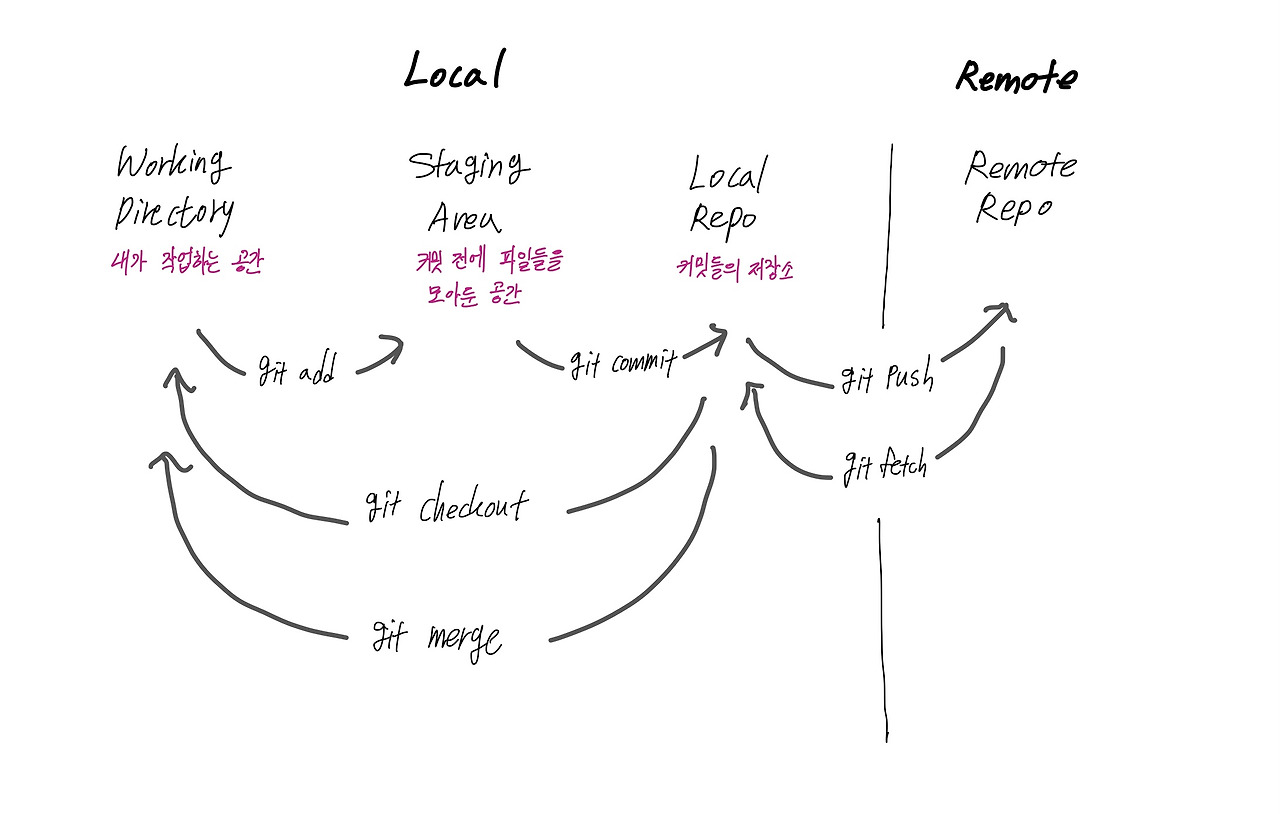 Local
Remote
Working
Directory
내가 작업하는 공간
Staging
Area
커밋 전에 파일들을
모아둔 공간
Local
Repo
커밋들의 저장소
Remote
Repo
git add
git commit
git push
git fetch
git checkout
git merge